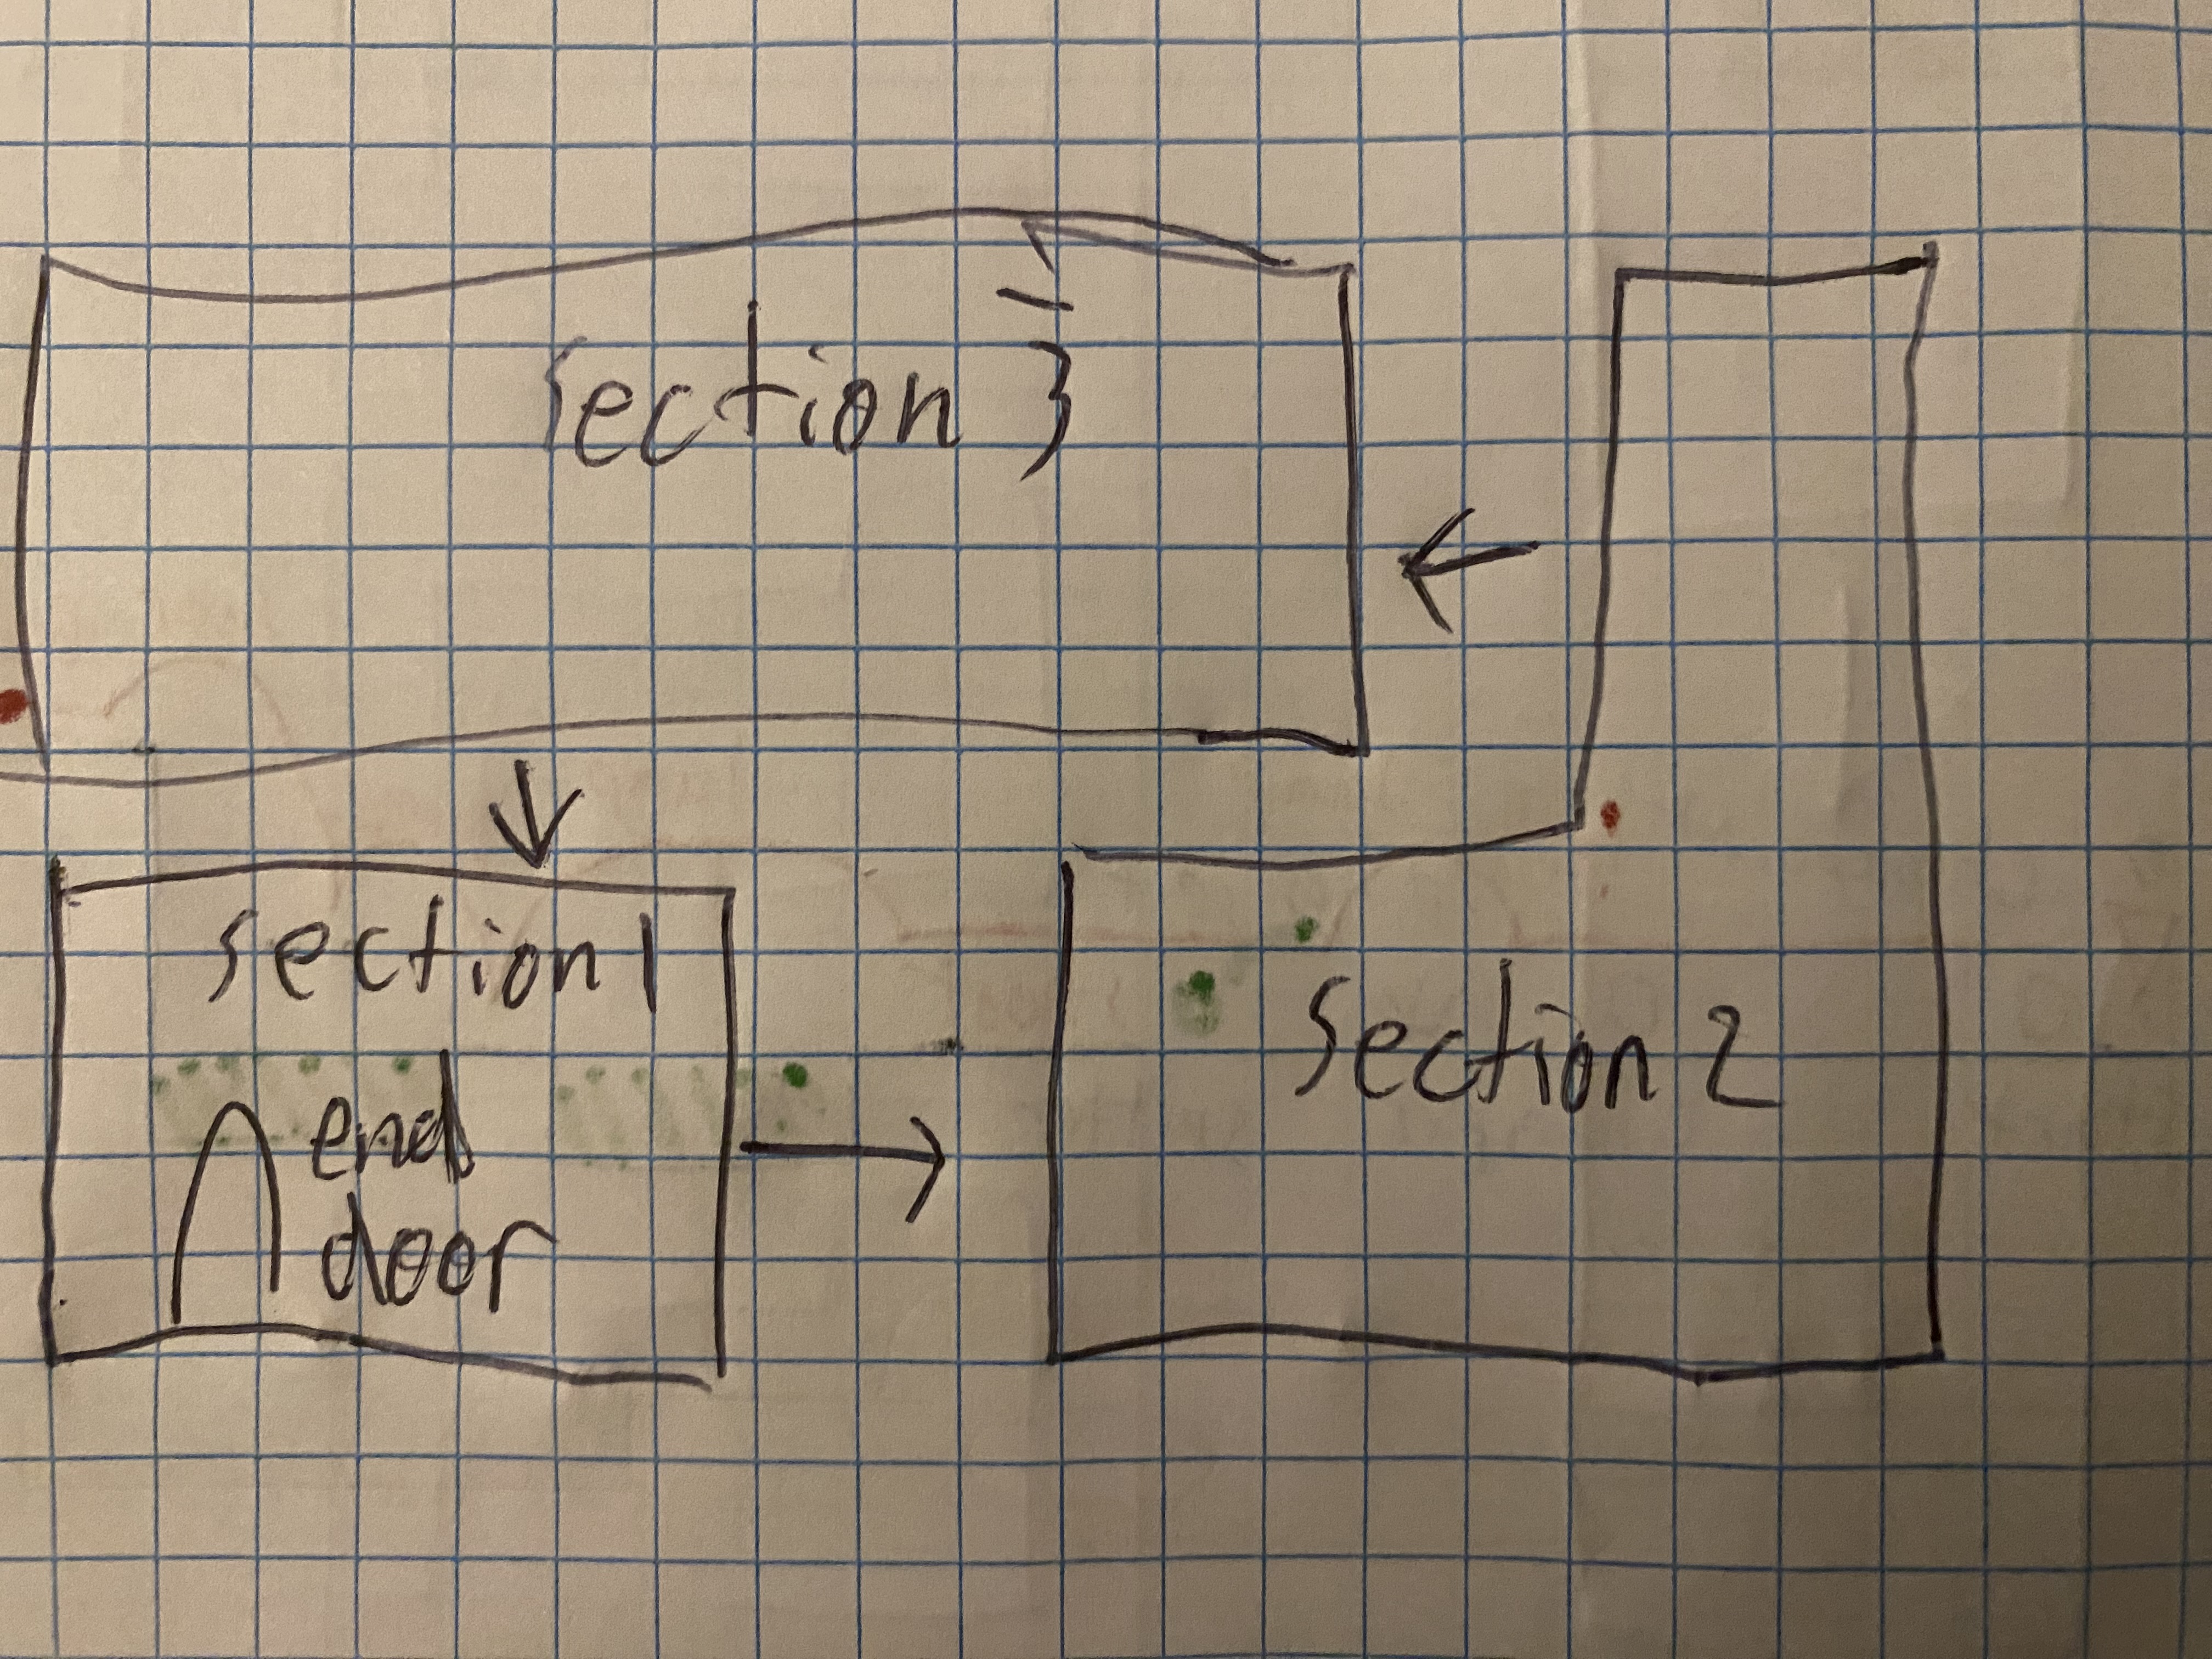 section 3
section 1
end
door
section 2